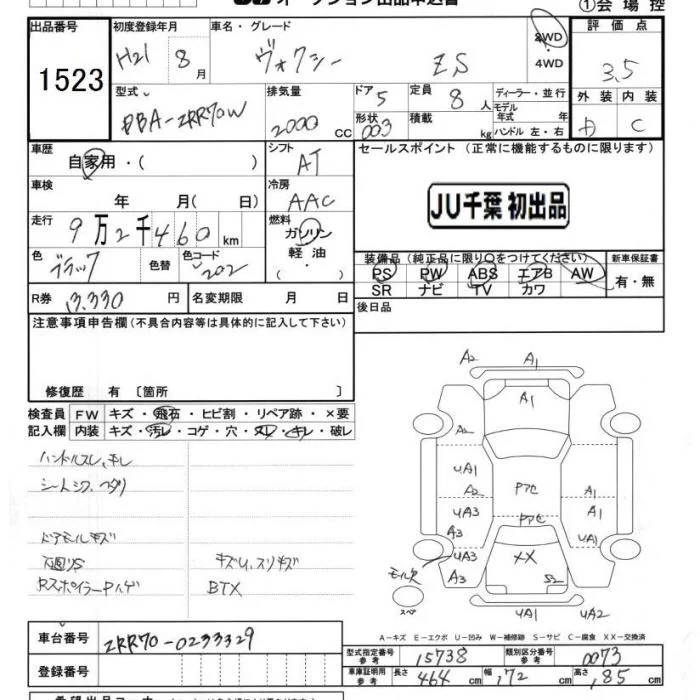 オークション出品申込書
①会場控
出品番号 初度登録年月 車名・グレード 2WD 評価点
1523 H21 8月 ヴォクシー ZS ・4WD 3,5
型式 排気量 ドア 5 定員 8人 ディーラー・並行 外装 内装
DBA-ZRR70W 2000cc 形状 003 積載 kg モデル年式 年 ハンドル 左・右 D C
車歴 シフト セールスポイント (正常に機能するものに限ります)
自家用・( ) AT
車検 冷房
年 月( 日) AAC JU千葉 初出品
走行 燃料
9万2千460km ガソリン
色 色替 色コード ・軽油 装備品(純正品に限り○をつけてください) 新車保証書
ブラック 202 ・( ) PS PW ABS エアB AW 有・無
R券 13.330円 名変期限 月 日 SR ナビ TV カワ
注意事項申告欄(不具合内容等は具体的に記入して下さい) 後日品
修復歴 有〔箇所 〕
検査員 FW キズ・飛石・ヒビ割・リペア跡・×要
記入欄 内装 キズ・汚レ・コゲ・穴・スレ・キレ・破レ
ハンドルスレ、キレ
シートシワ、ヘタリ
ドアモールキズ
キズU,スリキズ
RスポイラーPハゲ BTX
A2 A1
A1
A2
UA1
A2 Pアセ A1
UA3 Pアセ A1
A3
UA3 XX
モール欠 A3 S2
スペア UA1 UA2
A-キズ E-エクボ U-凹み W-補修跡 S-サビ C-腐食 XX-交換済
車台番号 ZRR70-0233329
型式指定番号 参考 15738 類別区分番号 参考 0073
登録番号 車庫証明用 参考 長さ 464cm 幅 172cm 高さ 185cm
希望出品コーナー